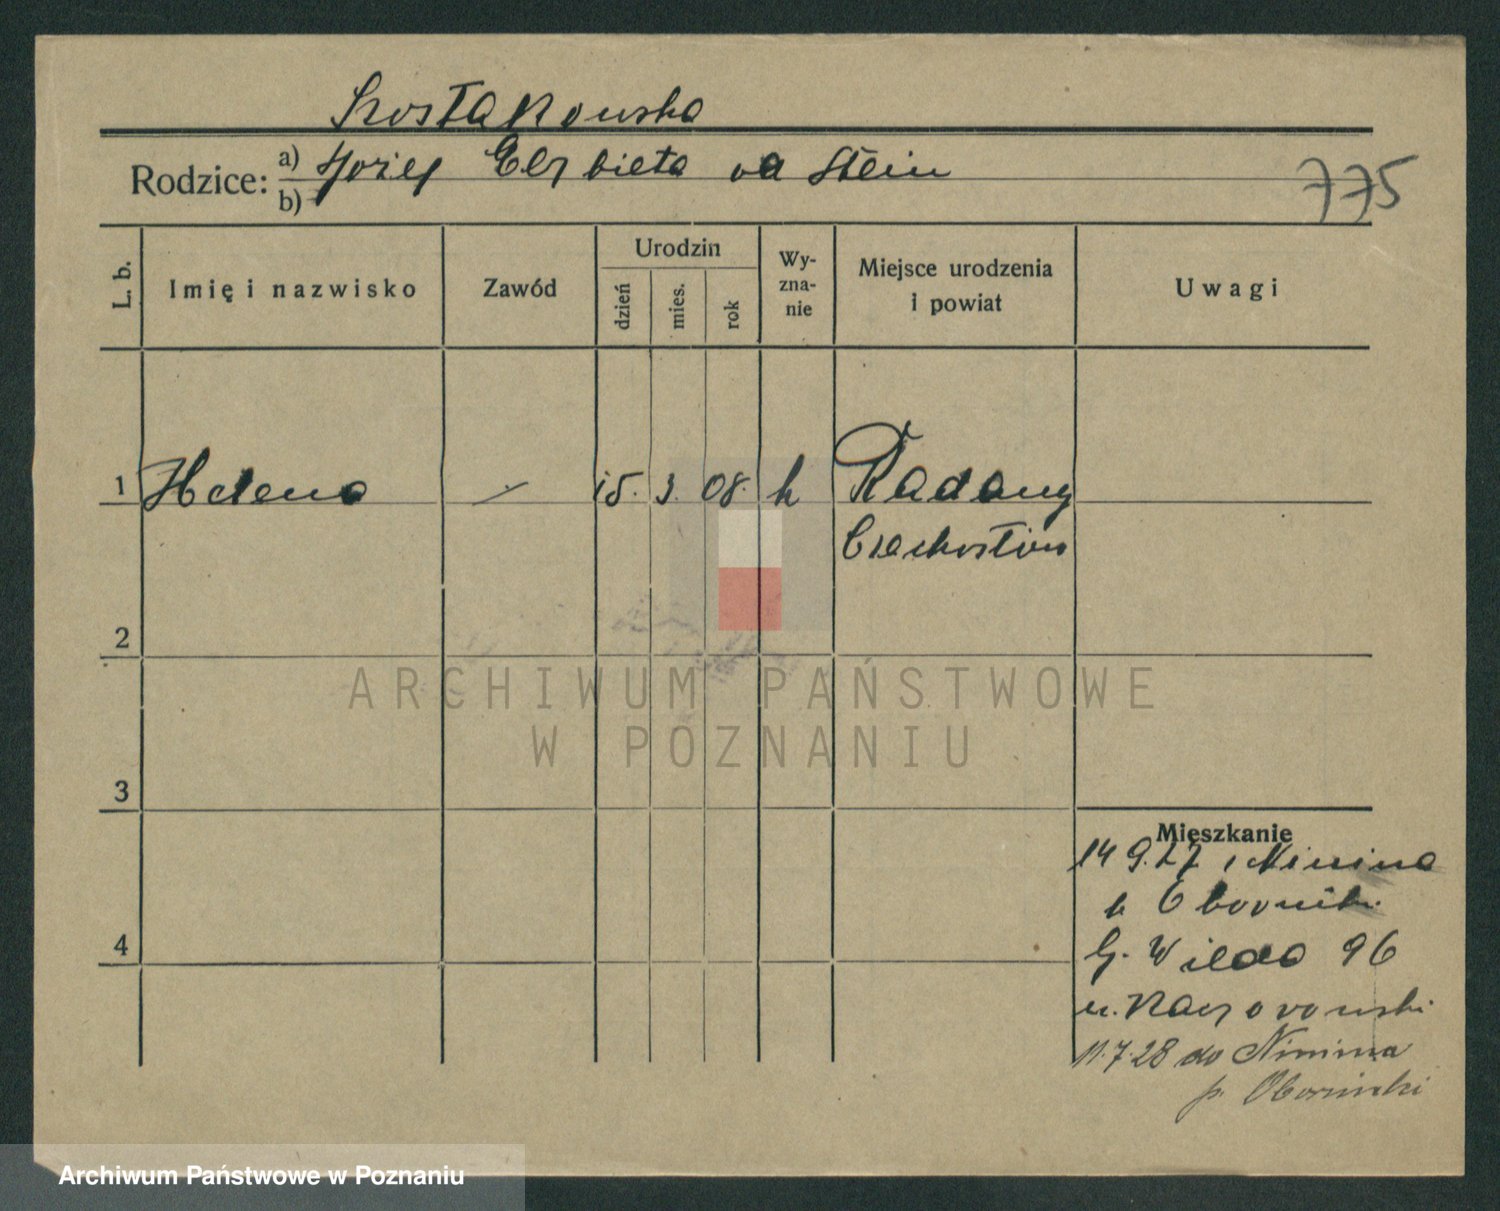 SzostaKowska
Rodzice: a) Józef Elzbieta
b)
775
L. b.
Imię i nazwisko
Zawód
Urodzin
dzień
mies.
rok
Wy-
zna-
nie
Miejsce urodzenia
i powiat
Uwagi
1 Helena 15. 3. 08. k Radany
2
3
4
Mieszkanie
14 9.27 Ninina
Obornik
G. Wilda 96
u. Kaczorowski
11.7.28 do Ninina
p. Obornicki
ARCHIWUM PAŃSTWOWE
W POZNANIU
Archiwum Państwowe w Poznaniu